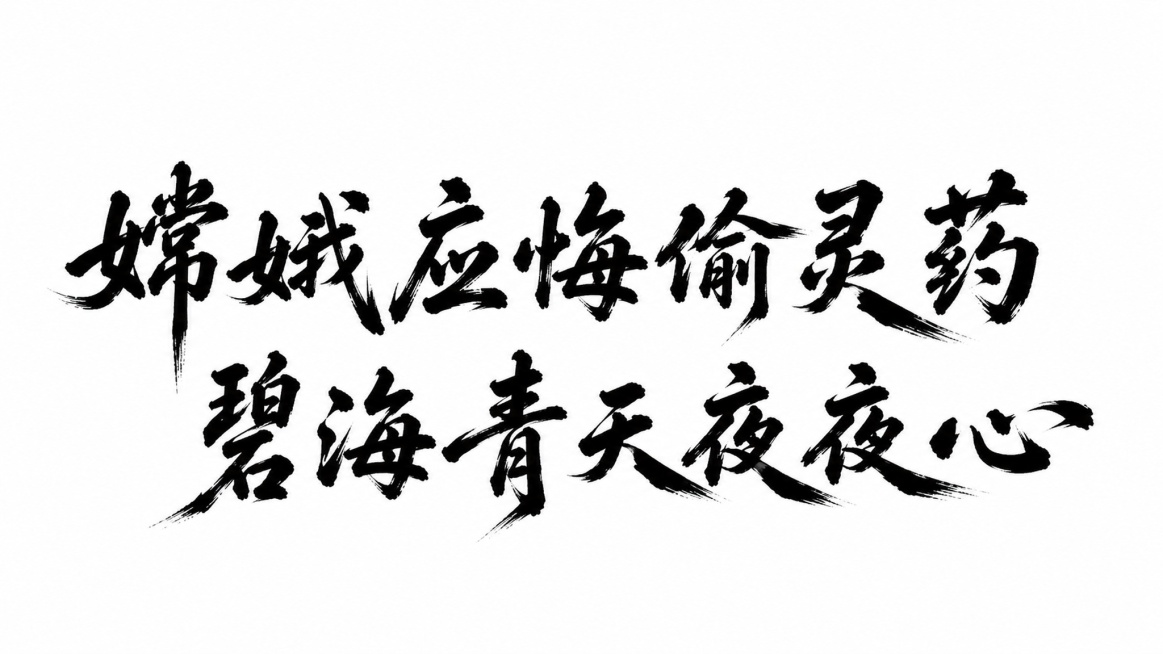 嫦娥应悔偷灵药
碧海青天夜夜心